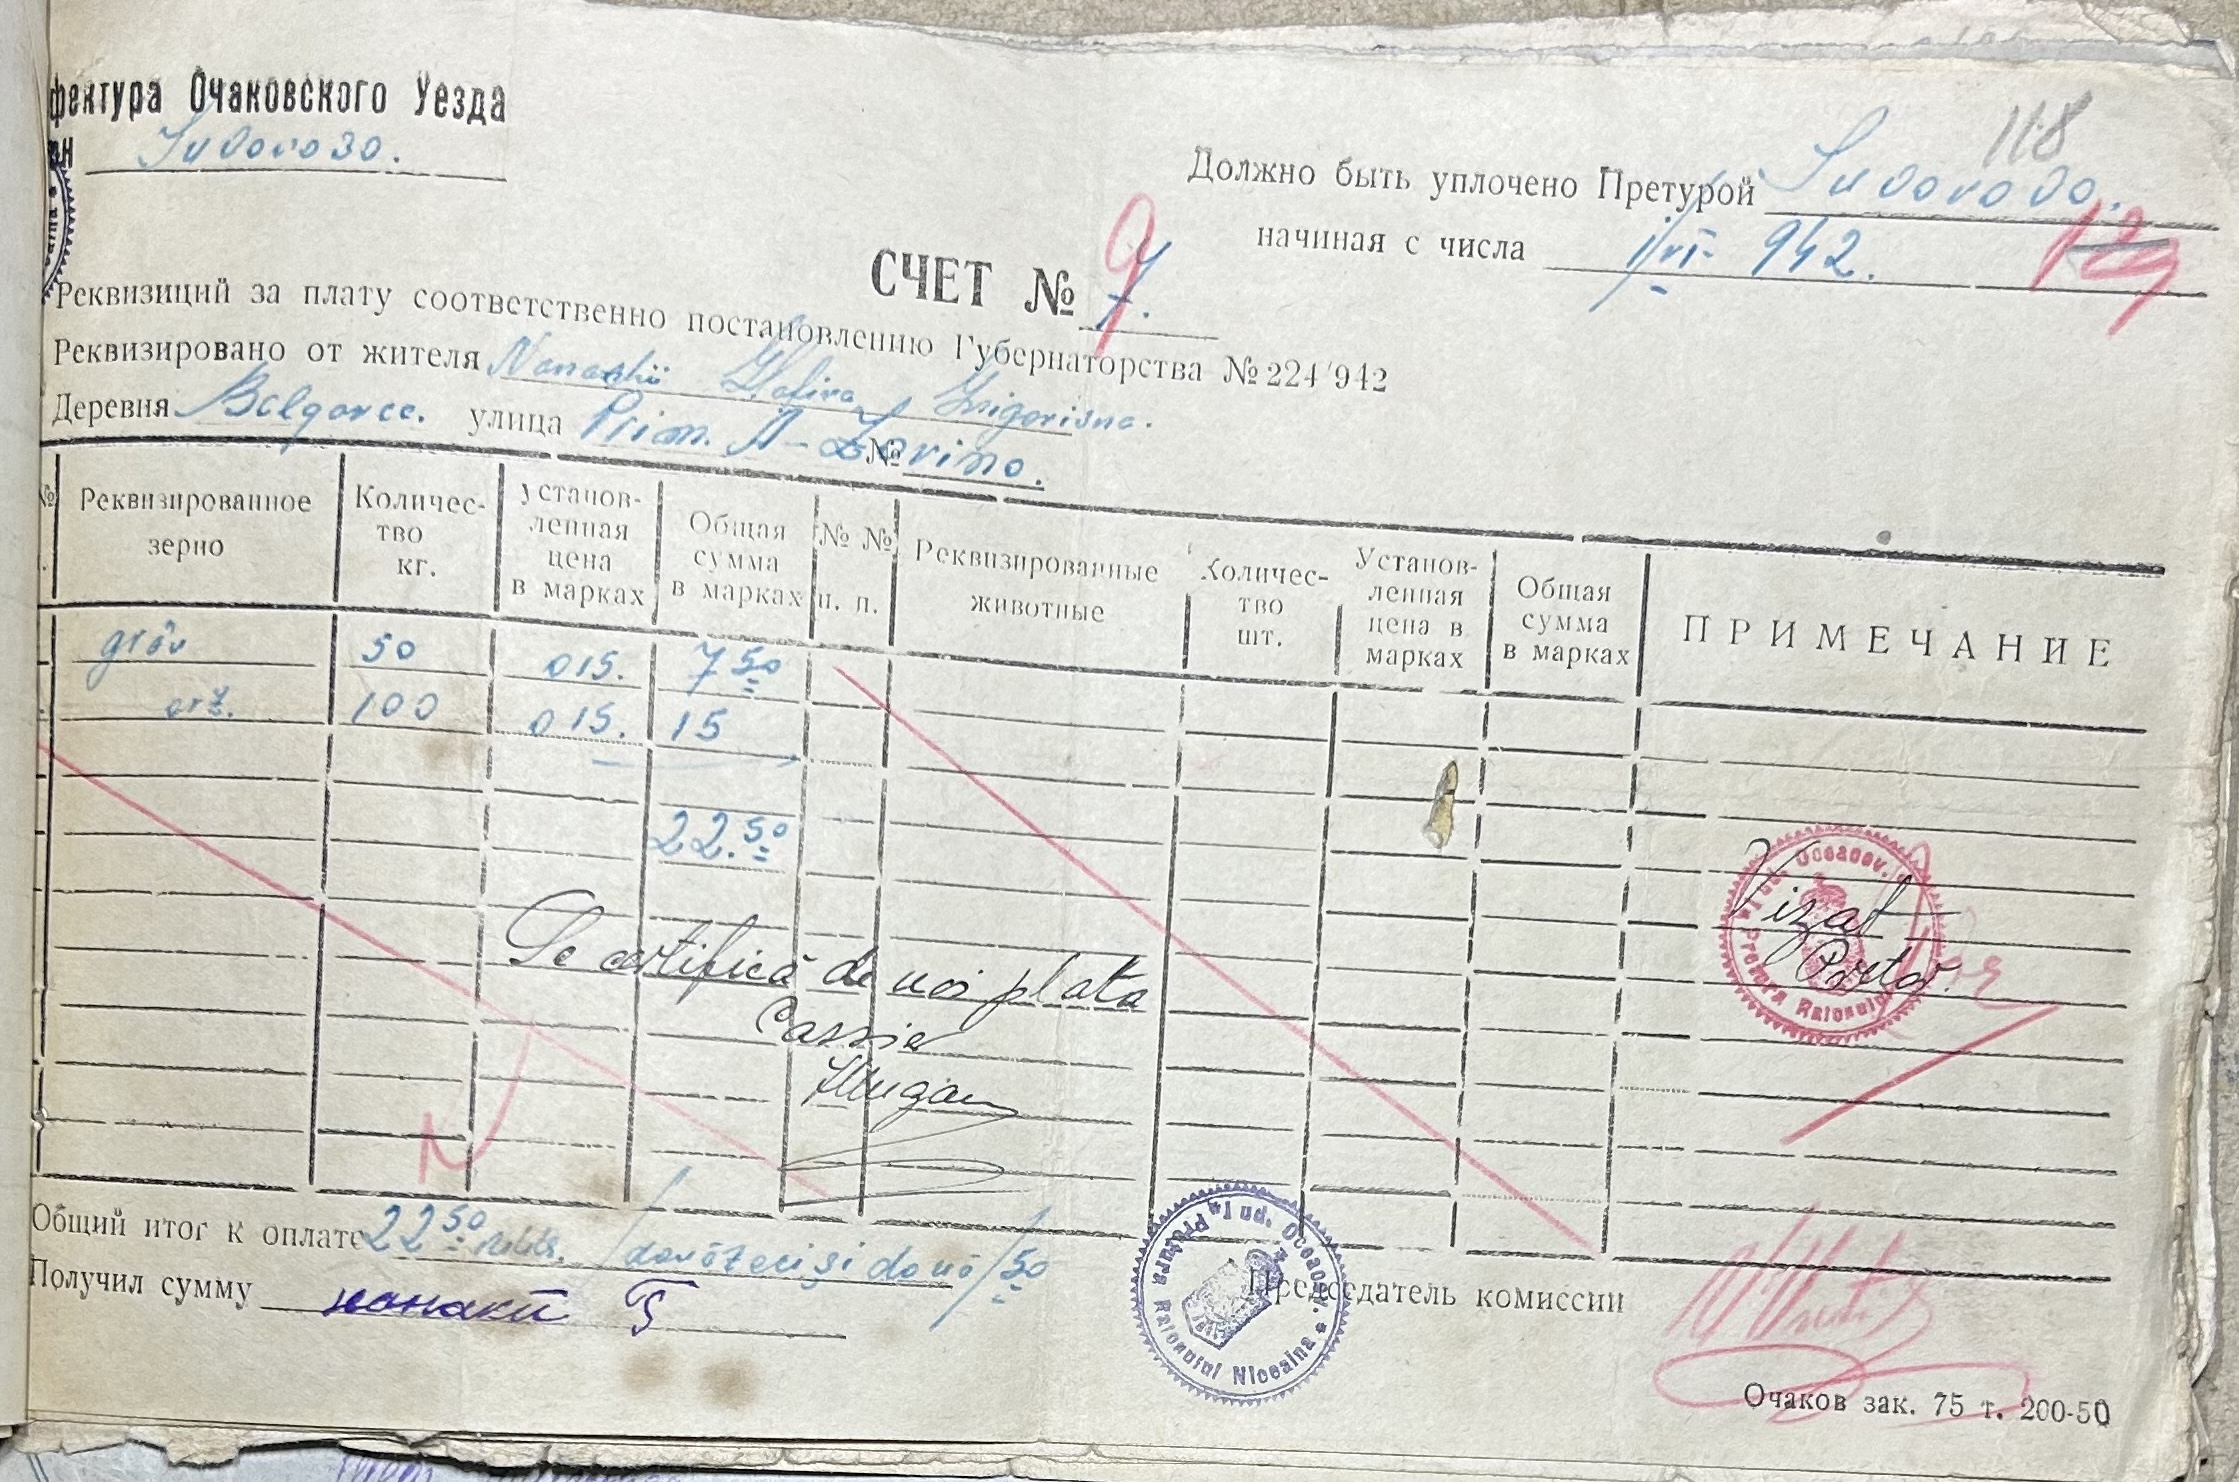 фектура Очаковского Уезда
н Suvorovo.
118
Должно быть уплочено Претурой Suvorovo.
начиная с числа 1/VI- 942.
СЧЕТ № 7.
Реквизиций за плату соответственно постановлению Губернаторства № 224/942
Реквизировано от жителя Nanaskii Glafira Grigorievna.
Деревня Belgorce. улица Prim. II-Zarino.
№
№ Реквизированное зерно Количество кг. Установленная цена в марках Общая сумма в марках №№ п. п. Реквизированные животные Количество шт. Установленная цена в марках Общая сумма в марках ПРИМЕЧАНИЕ
grâu 50 015. 7 50
orz. 100 015. 15
22.50
Se certifică de noi plata
Cassier
Vizat
Pretor.
Pretura Raionului Jud. Oceacov.
Общий итог к оплате 22 50 /douăzeci și două/50
Получил сумму нанаки Г
Председатель комиссии
Pretura Raionului Niceaina Jud. Oceacov.
Очаков зак. 75 т. 200-50